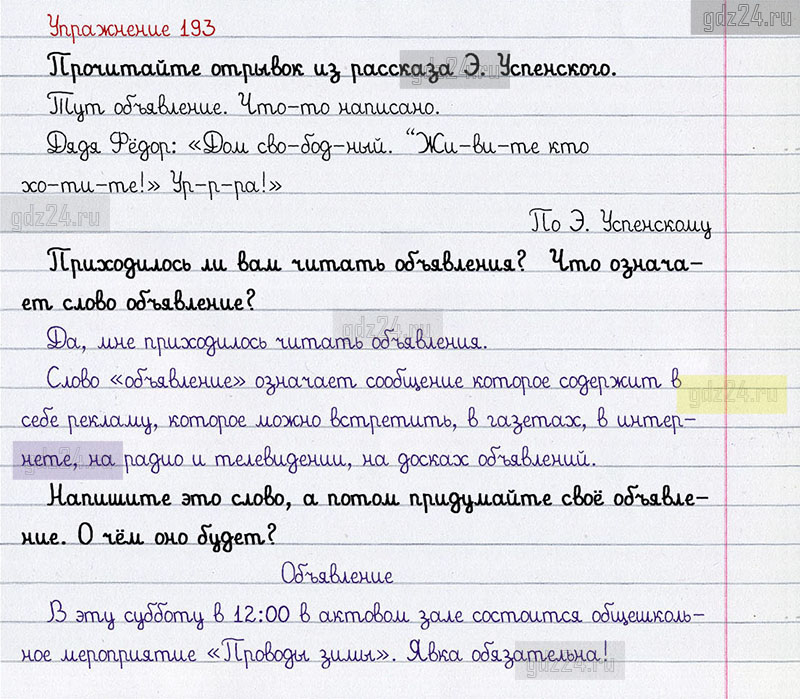 gdz24.ru
Упражнение 193
Прочитайте отрывок из рассказа Э. Успенского.
gdz24.ru
Тут объявление. Что-то написано.
Дядя Фёдор: «Дом сво-бод-ный. “Жи-ви-те кто
хо-ти-те!» Ур-р-ра!»
gdz24.ru
По Э. Успенскому
Приходилось ли вам читать объявления? Что означа-
ет слово объявление?
gdz24.ru
Да, мне приходилось читать объявления.
Слово «объявление» означает сообщение которое содержит в
gdz24.ru
себе рекламу, которое можно встретить, в газетах, в интер-
нете, на радио и телевидении, на досках объявлений.
gdz24.ru
Напишите это слово, а потом придумайте своё объявле-
ние. О чём оно будет?
Объявление
В эту субботу в 12:00 в актовом зале состоится общешколь-
ное мероприятие «Проводы зимы». Явка обязательна!
gdz24.ru